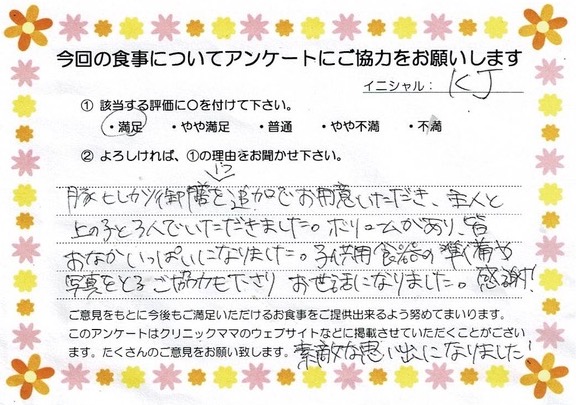 今回の食事についてアンケートにご協力をお願いします
イニシャル： KJ
① 該当する評価に○を付けて下さい。
・満足 ・やや満足 ・普通 ・やや不満 ・不満
② よろしければ、①の理由をお聞かせ下さい。
豚ヒレカツ御膳を追加でご用意いただき、主人と
上の子と3人でいただきました。ボリュームがあり、皆
おなかいっぱいになりました。子供用食器の準備や
写真をとるご協力も下さり お世話になりました。感謝!
ご意見をもとに今後もご満足いただけるお食事をご提供出来るよう努めてまいります。
このアンケートはクリニックママのウェブサイトなどに掲載させていただくことがござい
ます。たくさんのご意見をお願い致します。素敵な思い出になりました!